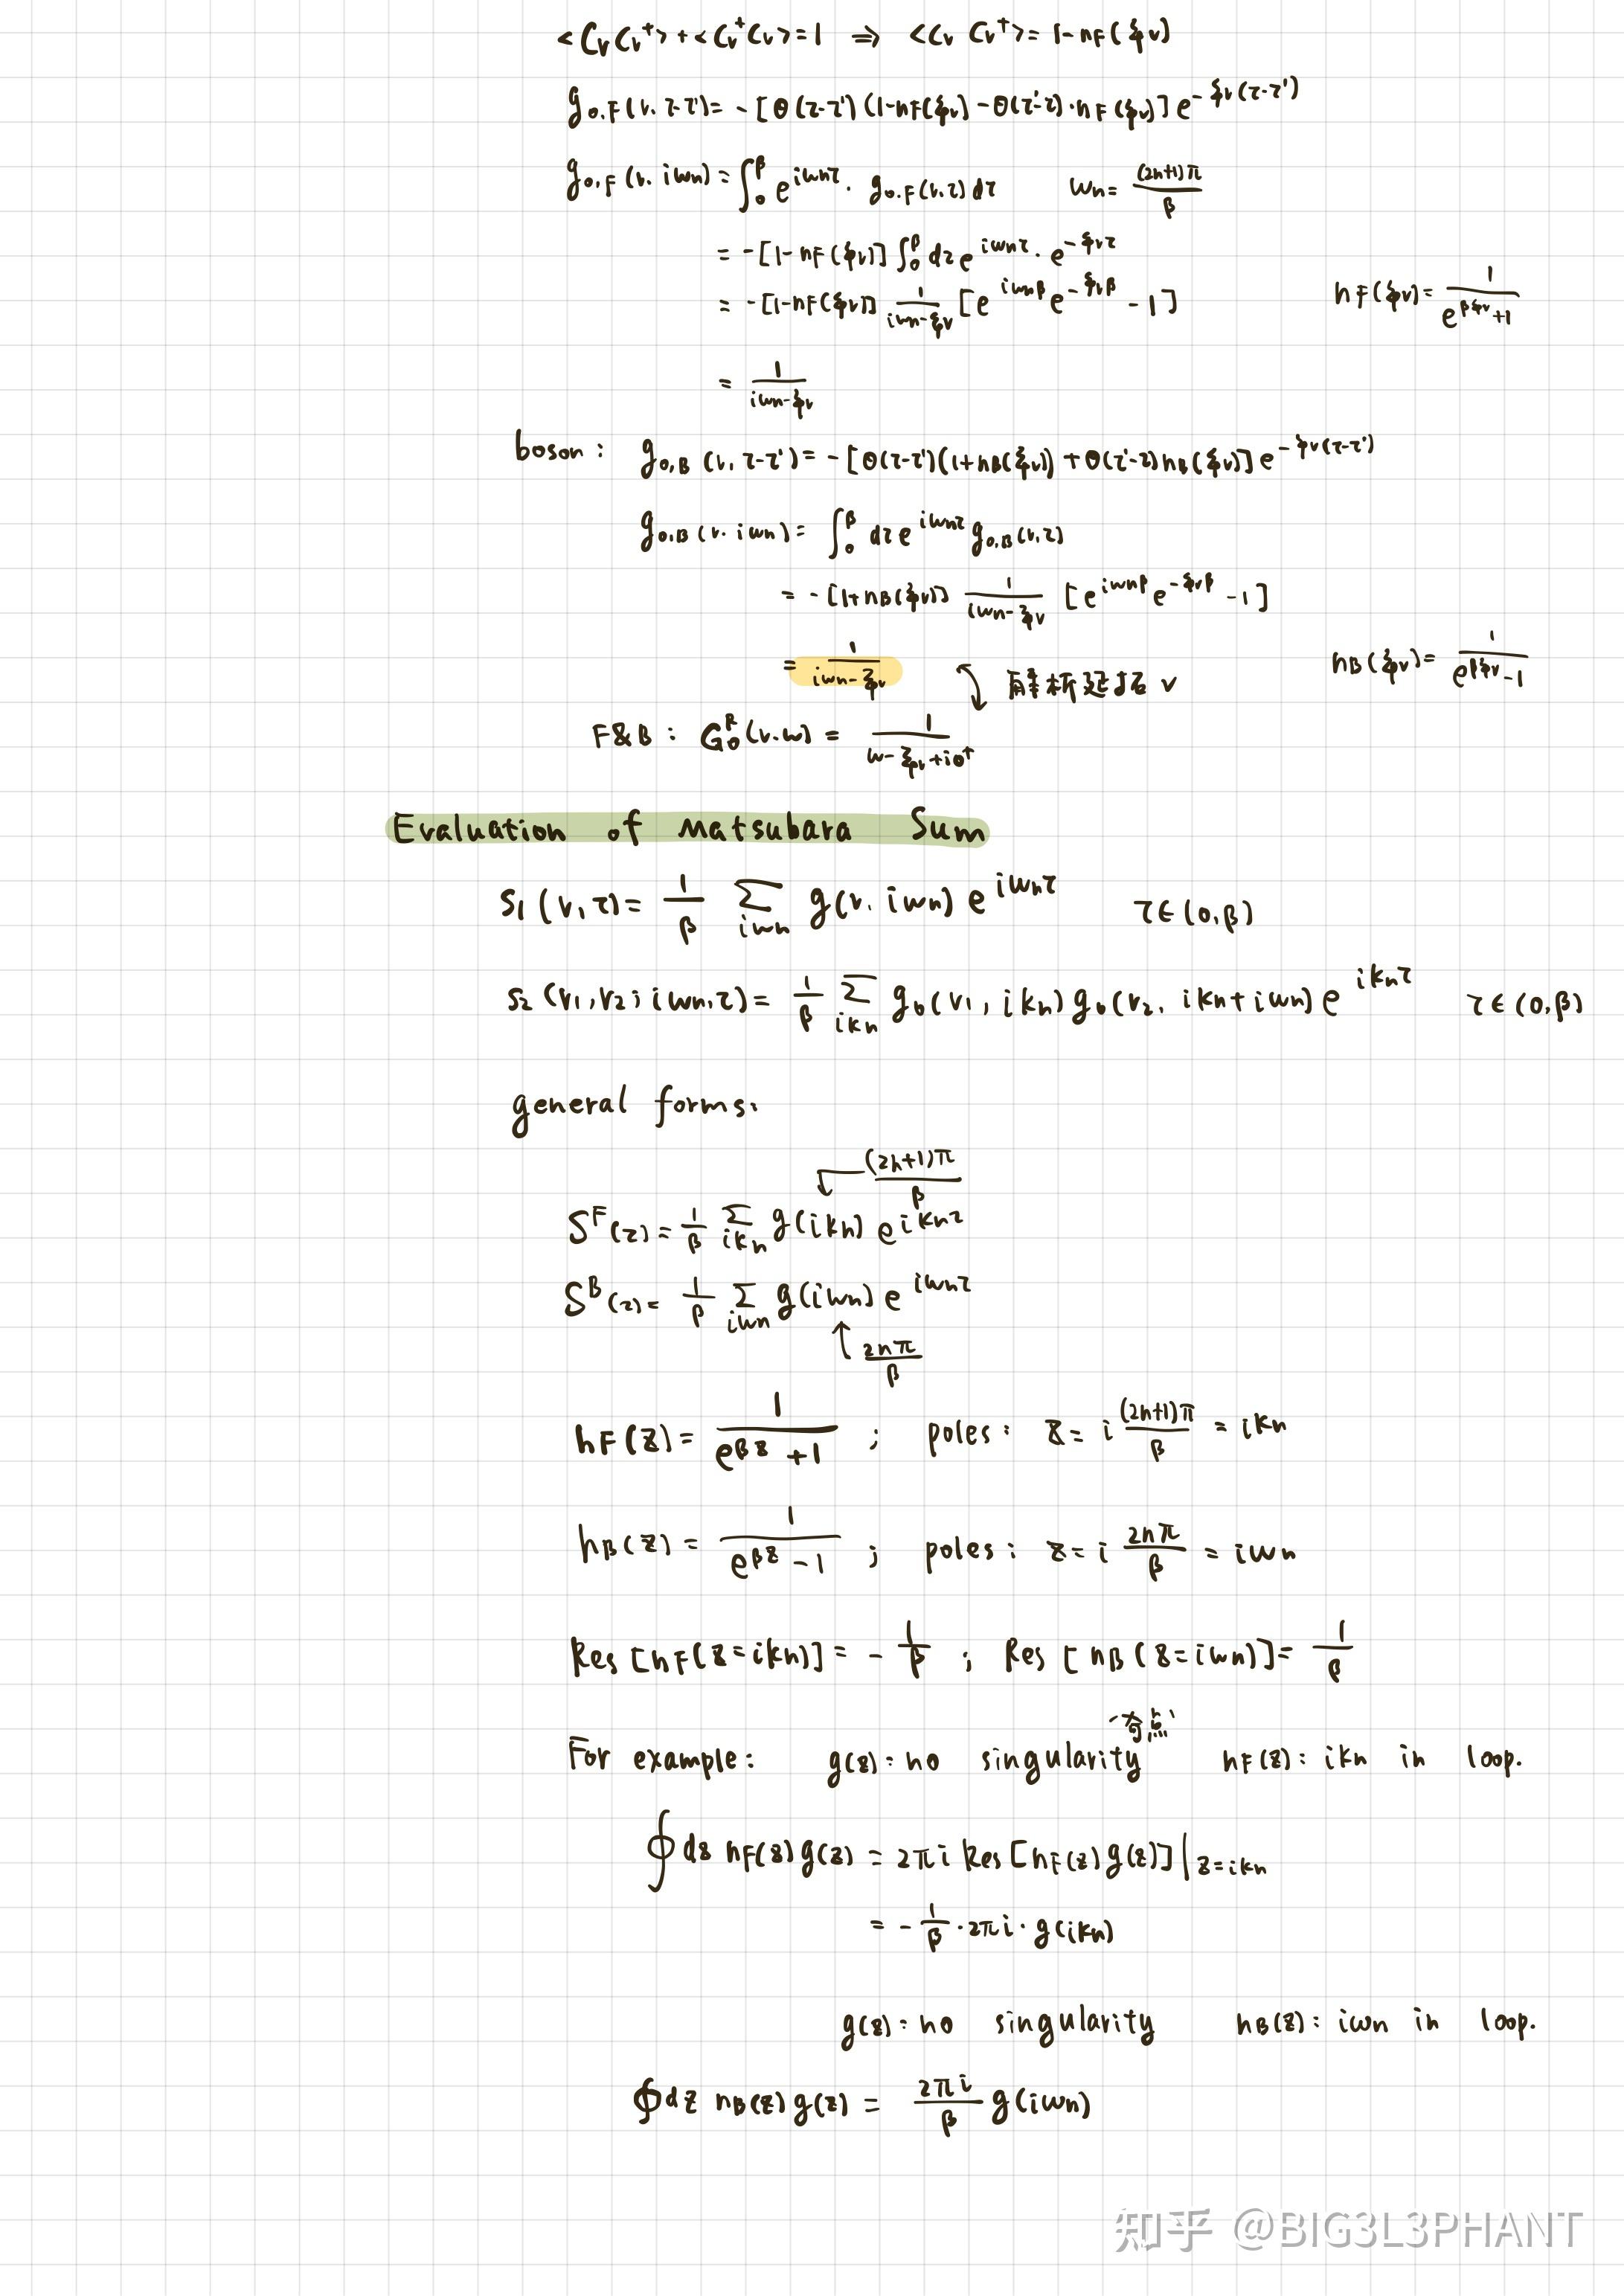 <Cν Cν†> + <Cν† Cν> = 1 ⇒ <Cν Cν†> = 1-nF(ξν)
g0.F(ν. τ-τ') = -[θ(τ-τ')(1-nF(ξν) - θ(τ'-τ)·nF(ξν)] e^{-ξν(τ-τ')}
g0,F(ν. iωn) = ∫_0^β e^{iωnτ}· g0.F(ν.τ) dτ ωn = (2n+1)π/β
= -[1-nF(ξν)] ∫_0^β dτ e^{iωnτ}· e^{-ξντ}
= -[1-nF(ξν)] 1/(iωn-ξν) [e^{iωnβ} e^{-ξνβ} - 1] nF(ξν) = 1/(e^{βξν}+1)
= 1/(iωn-ξν)
boson: g0,B(ν, τ-τ') = -[θ(τ-τ')(1+nB(ξν)) + θ(τ'-τ) nB(ξν)] e^{-ξν(τ-τ')}
g0,B(ν. iωn) = ∫_0^β dτ e^{iωnτ} g0,B(ν,τ)
= -[1+nB(ξν)] 1/(iωn-ξν) [e^{iωnβ} e^{-ξνβ} - 1]
= 1/(iωn-ξν) 解析延拓 ✓ nB(ξν) = 1/(e^{βξν}-1)
F&B: G_0^R(ν.ω) = 1/(ω-ξν+i0⁺)
Evaluation of Matsubara Sum
S1(ν,τ) = 1/β Σ_{iωn} g(ν. iωn) e^{iωnτ} τ∈(0,β)
S2(ν1,ν2; iωn,τ) = 1/β Σ_{ikn} g0(ν1, ikn) g0(ν2, ikn+iωn) e^{iknτ} τ∈(0,β)
general forms.
(2n+1)π/β
S^F(τ) = 1/β Σ_{ikn} g(ikn) e^{iknτ}
S^B(τ) = 1/β Σ_{iωn} g(iωn) e^{iωnτ}
2nπ/β
nF(z) = 1/(e^{βz}+1) ; poles: z = i (2n+1)π/β = ikn
nB(z) = 1/(e^{βz}-1) ; poles: z = i 2nπ/β = iωn
Res [nF(z=ikn)] = -1/β ; Res [nB(z=iωn)] = 1/β
奇点
For example: g(z): no singularity nF(z): ikn in loop.
∮dz nF(z) g(z) = 2πi Res[nF(z) g(z)]|_{z=ikn}
= -1/β · 2πi · g(ikn)
g(z): no singularity nB(z): iωn in loop.
∮dz nB(z) g(z) = 2πi/β g(iωn)
知乎 @BIG3L3PHANT